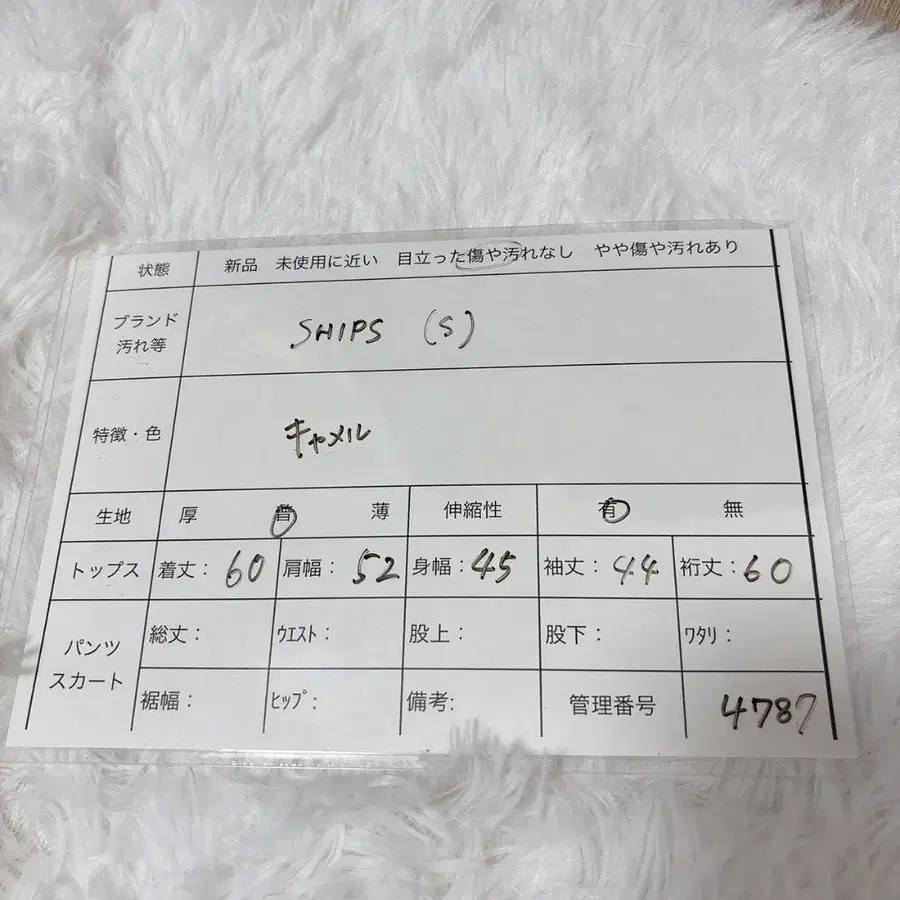 状態 新品 未使用に近い 目立った傷や汚れなし やや傷や汚れあり
ブランド
汚れ等
SHIPS (S)
特徴・色 キャメル
生地 厚 普 薄 伸縮性 有 無
トップス 着丈: 60 肩幅: 52 身幅: 45 袖丈: 44 裄丈: 60
パンツ
スカート
総丈: ウエスト: 股上: 股下: ワタリ:
裾幅: ヒップ: 備考: 管理番号 4787